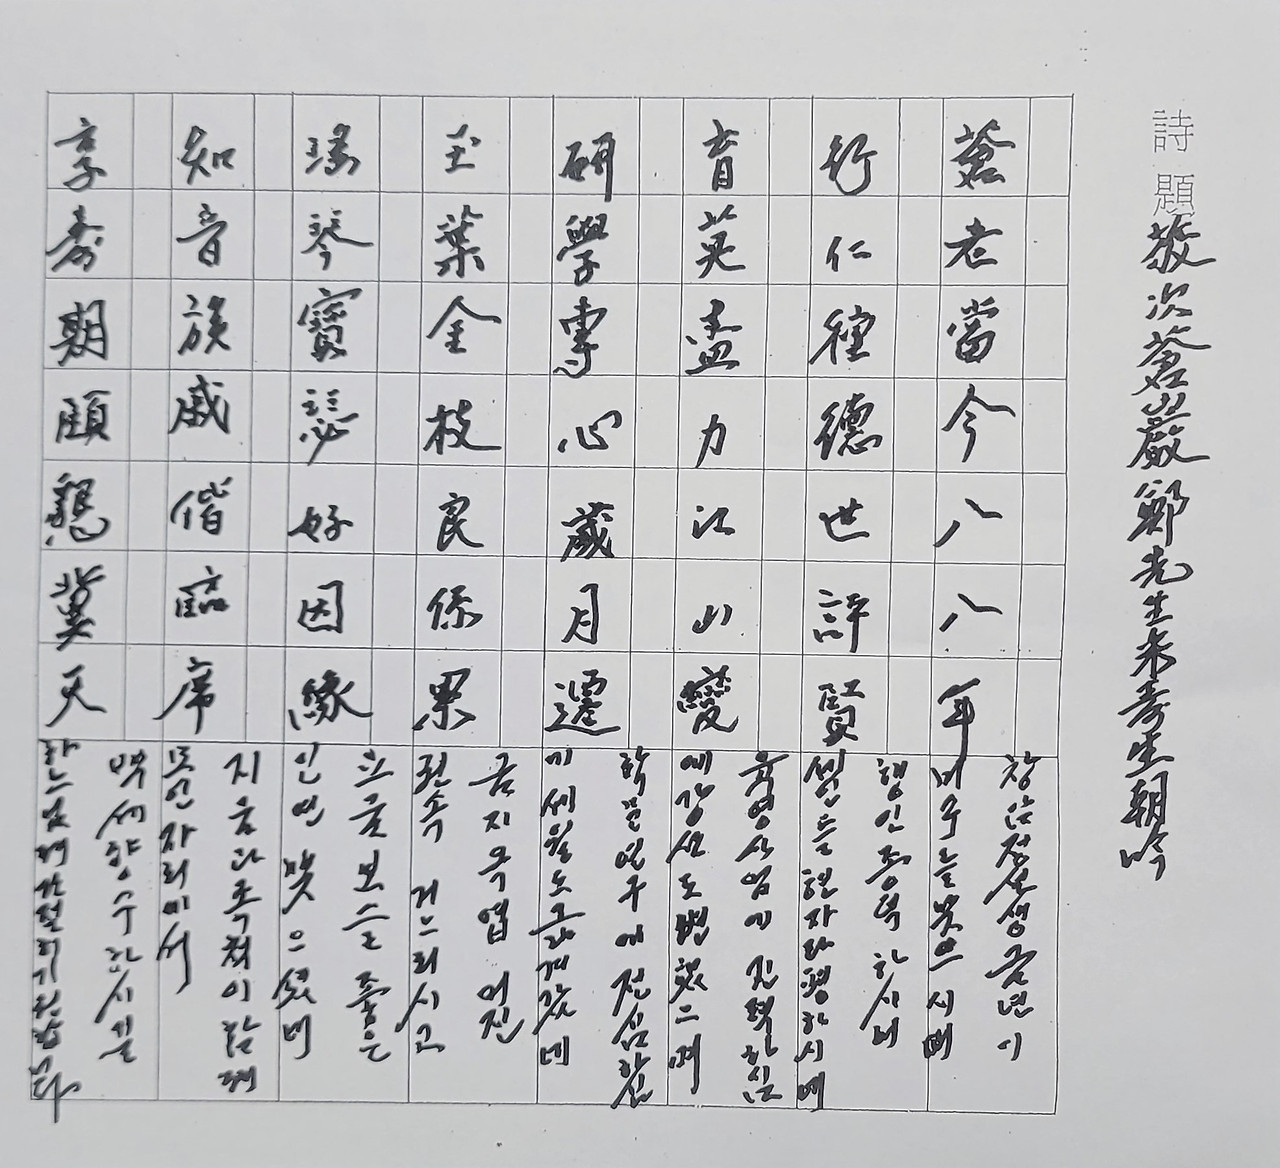 詩題 敬次蒼巖鄭先生米壽生朝吟
蒼老當今八八年
창암정선생금년이
미수를맞으시메
行仁種德世評賢
행인종덕하시니
세인들현자라평하시메
育英盡力江山變
육영사업에진력하심
에강산도변했으며
硏學專心歲月遷
학문연구에전심하심
에세월도흘러갔네
玉葉金枝良係累
금지옥엽어진
권속거느리시고
瑤琴寶瑟好因緣
요금보슬좋은
인연맺으셨네
知音族戚偕臨席
지음과족척이함께
모인자리에서
享壽期頤懇冀天
백세향수하시길
하느님께간절히기원합니다